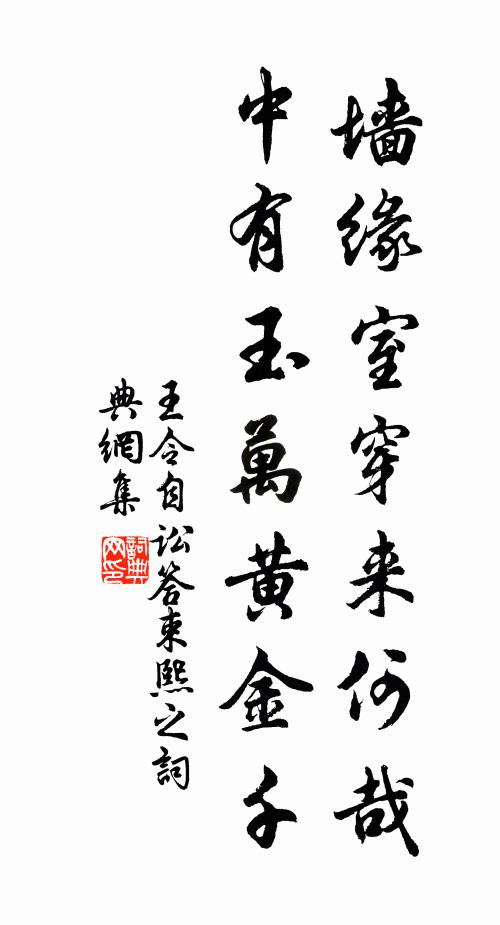 墙缘室穿来何哉
中有玉萬黄金千
王令自訟答束熙之詞
典網集
詞典
网印